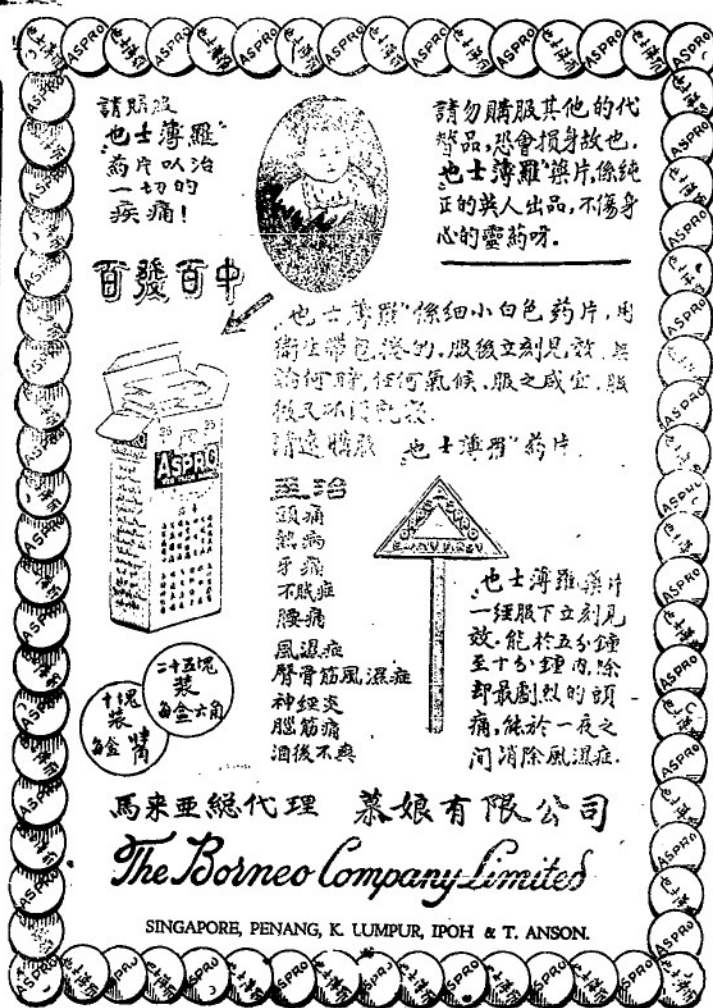 請購服
"也士薄羅"
葯片以治
一切的
疾痛!
百發百中
請勿購服其他的代
替品,恐會損身故也.
"也士薄羅"藥片,係純
正的英人出品,不傷身
心的靈葯呀.
"也士薄羅"係細小白色葯片,用
衛生帶包捲的.服後立刻見效.無
論何時,任何氣候.服之咸宜.服
後又不
請速購服 "也士薄羅"葯片.
ASPRO
主治
頭痛
熱病
牙痛
不眠症
腰痛
風濕症
臀骨筋風濕症
神經炎
腦筋痛
酒後不爽
"也士薄羅"藥片
一經服下立刻見
效.能於五分鐘
至十分鐘內,除
却最劇烈的頭
痛,能於一夜之
间消除風濕症.
二十五塊
裝
每盒六角
十塊
裝
每盒
馬来亚總代理 慕娘有限公司
The Borneo Company Limited
SINGAPORE, PENANG, K. LUMPUR, IPOH & T. ANSON.